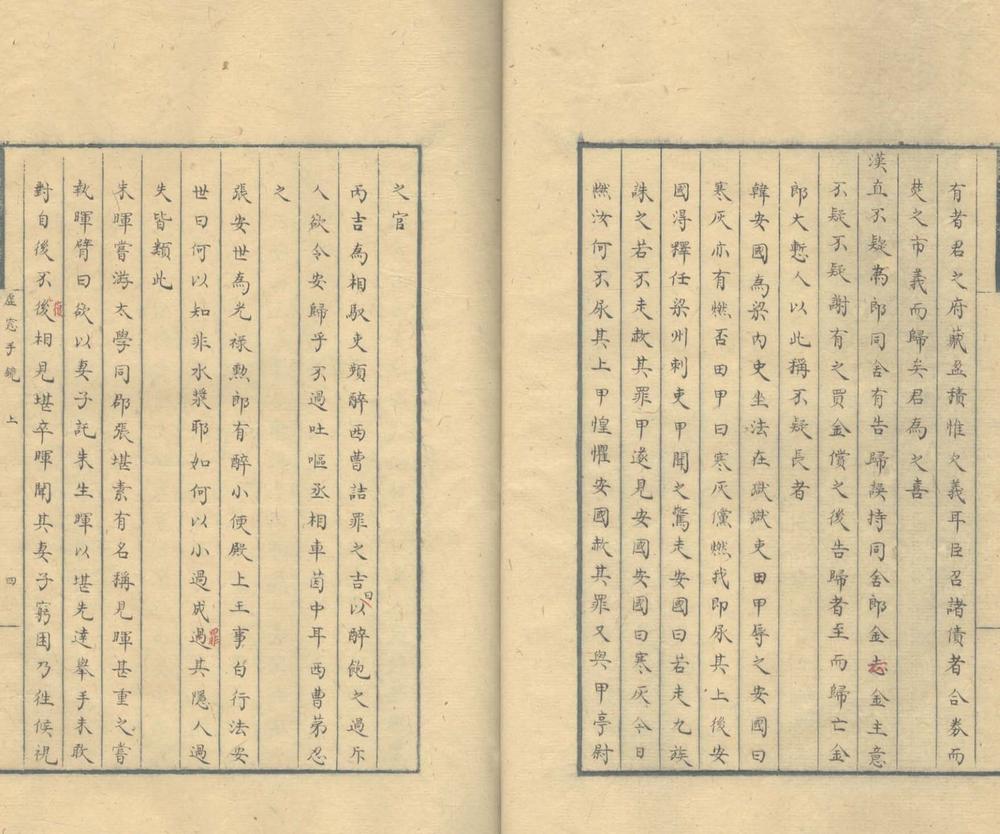 有者君之府藏盈積惟欠義耳臣召諸債者合券而
焚之市義而歸矣君為之喜
漢直不疑為郎同舍有告歸誤持同舍郎金志金主意
不疑不疑謝有之買金償之後告歸者至而歸亡金
郎大慙人以此稱不疑長者
韓安國為梁內史坐法在獄獄吏田甲辱之安國曰
寒灰亦有燃否田甲曰寒灰儻燃我即尿其上後安
國得釋任梁州刺吏甲聞之驚走安國曰若走九族
誅之若不走赦其罪甲遂見安國安國曰寒灰今日
燃汝何不尿其上甲惶懼安國赦其罪又與甲亭尉
之官
丙吉為相馭吏頻醉西曹詰罪之吉曰以醉飽之過斥
人欲令安歸乎不過吐嘔丞相車茵中耳西曹苐忍
之
張安世為光祿勲郎有醉小便殿上主事白行法安
世曰何以知非水漿耶如何以小過成過罪其隱人過
失皆類此
朱暉嘗游太學同郡張堪素有名稱見暉甚重之嘗
執暉臂曰欲以妻子託朱生暉以堪先達舉手未敢
對自後不後復相見堪卒暉聞其妻子窮困乃徃候視
虛窓手鏡 上 四